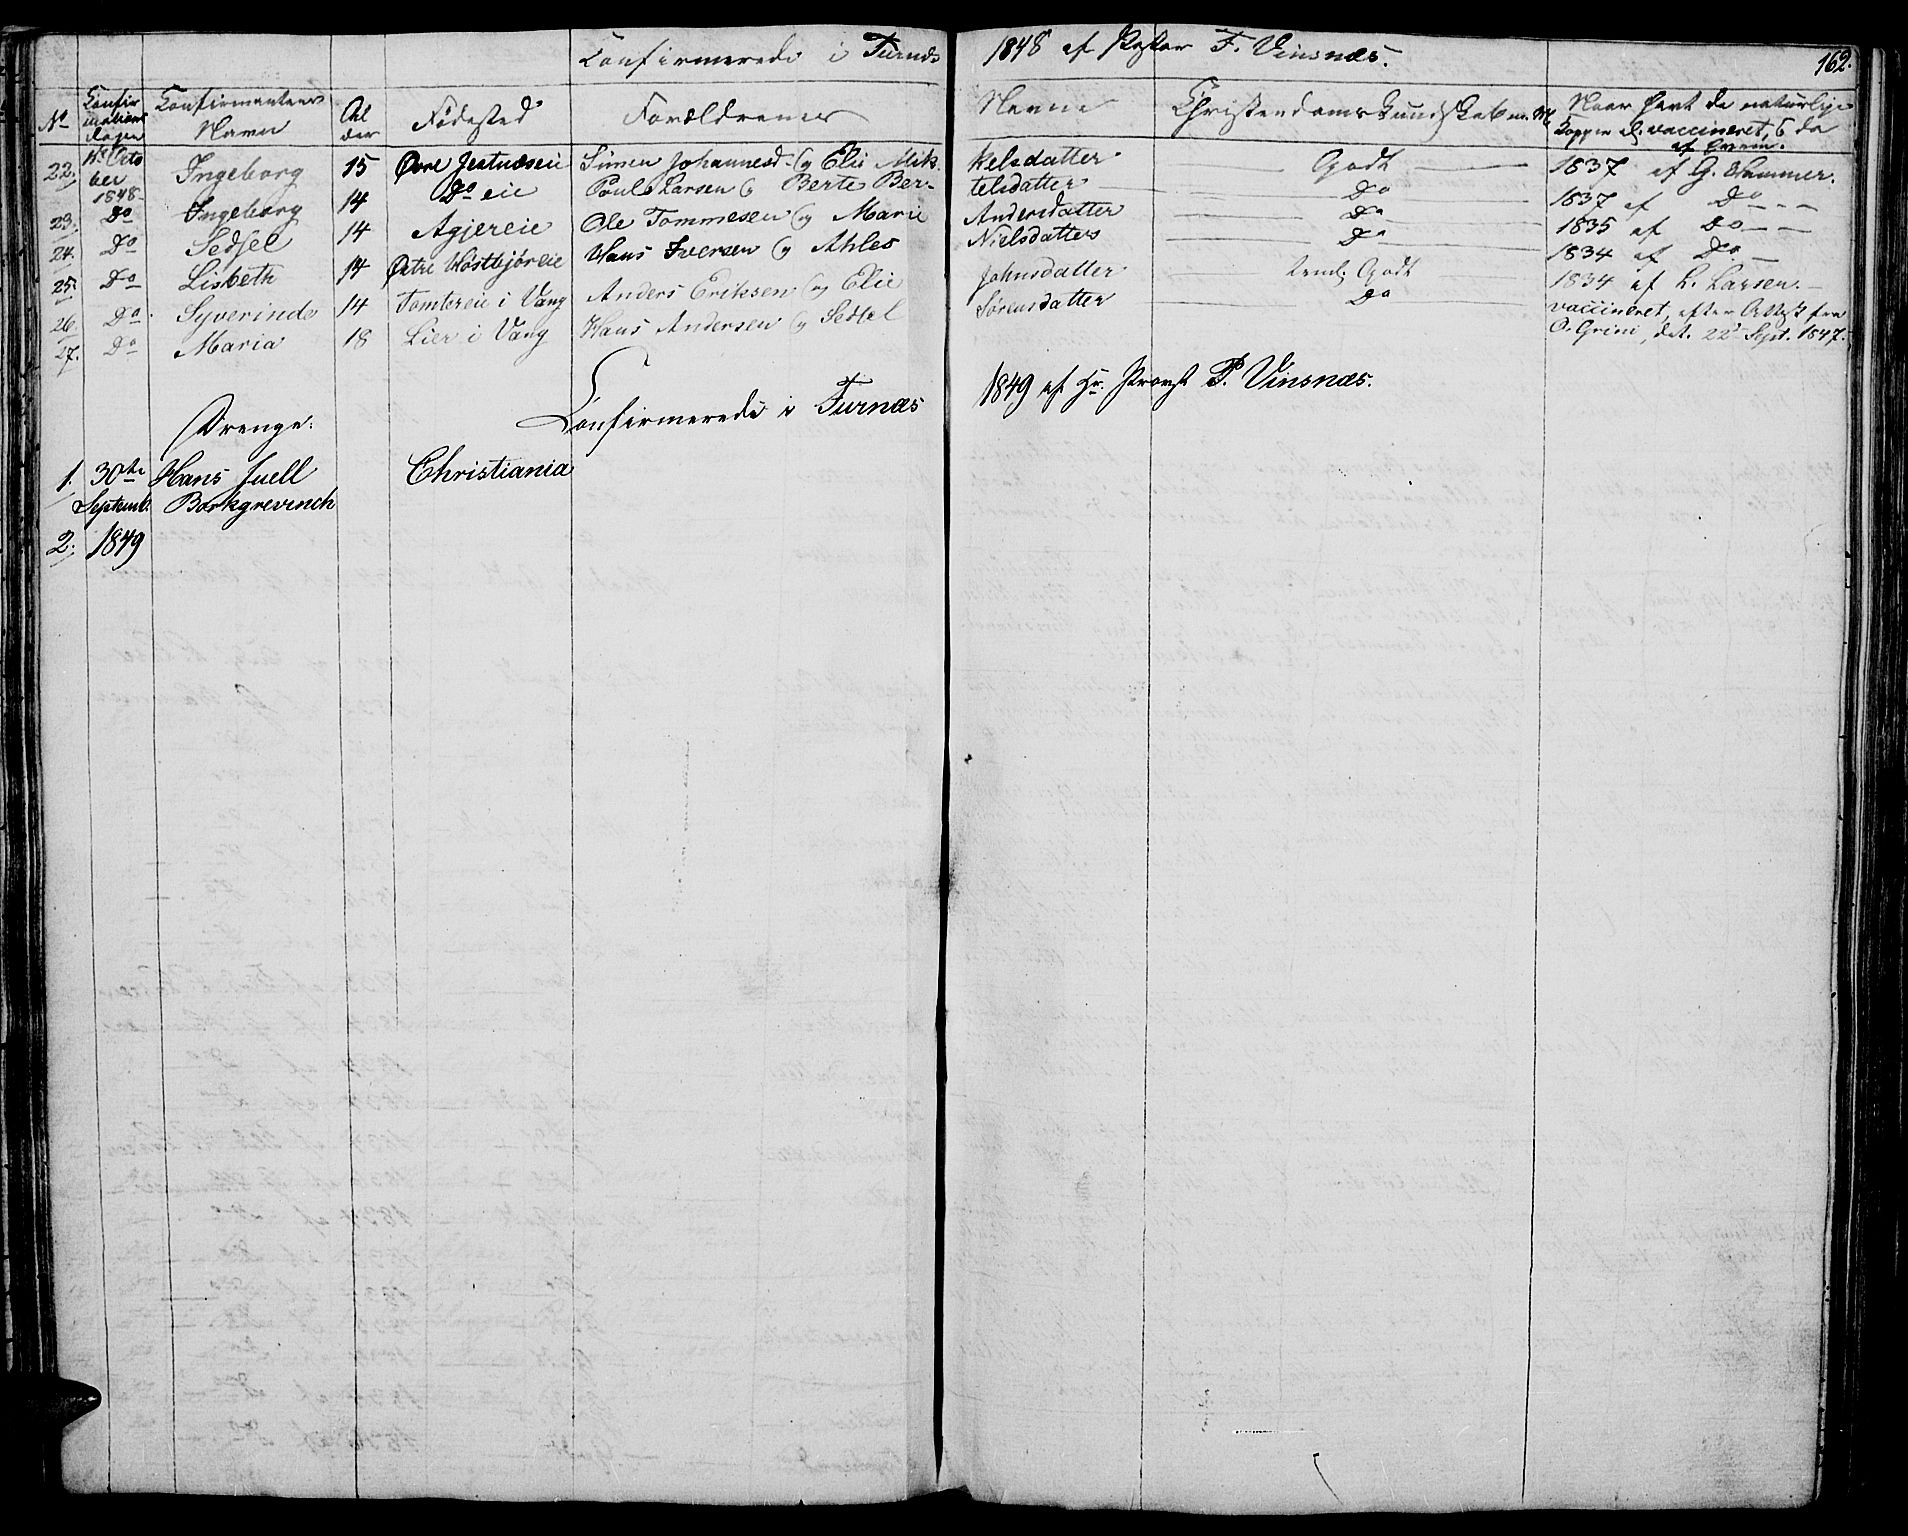 Confirmerede i Furnæs 1848 af Pastor F. Vinsnæs.
162.
No Confirmations Dagen Confirmantens Navn Alder Fødested Forældrenes Navne Christendomskundskab m. M. Naar havt de naturlige
Kopper el. vaccineret, & da
af hvem.
22. Octo Ingeborg 15 Øvre Jestnæseie Simen Johannesd. og Elie Mikkelsdatter Godt 1837 af G. Hammer.
ber
1848
23. Do Ingeborg 14 Do eie Poul Larsen & Berte Bertelsdatter Do 1837 af Do
24. Do Sedsel 14 Agjereie Ole Tommesen og Marie Andersdatter Do 1835 af Do
25. Do Lisbeth 14 Østre Hans Iversen og Ahles Nielsdatters Do 1834 af Do
26. Do Syverinde 14 Tomtereie i Vang Anders Eriksen og Elie Johnsdatter teml. Godt 1834 af L. Larsen.
27. Do Maria 18 Lier i Vang Hans Andersen og Sedsel Sørensdatter Do vaccineret, efter Attest fra
O. Grini, dat. 22 Sept. 1847.
Confirmerede i Furnæs 1849 af Hr. Provst P. Vinsnæs.
Drenge:
1. 30te Hans Juell Christiania
Septemb. Borkgrevinck
2. 1849